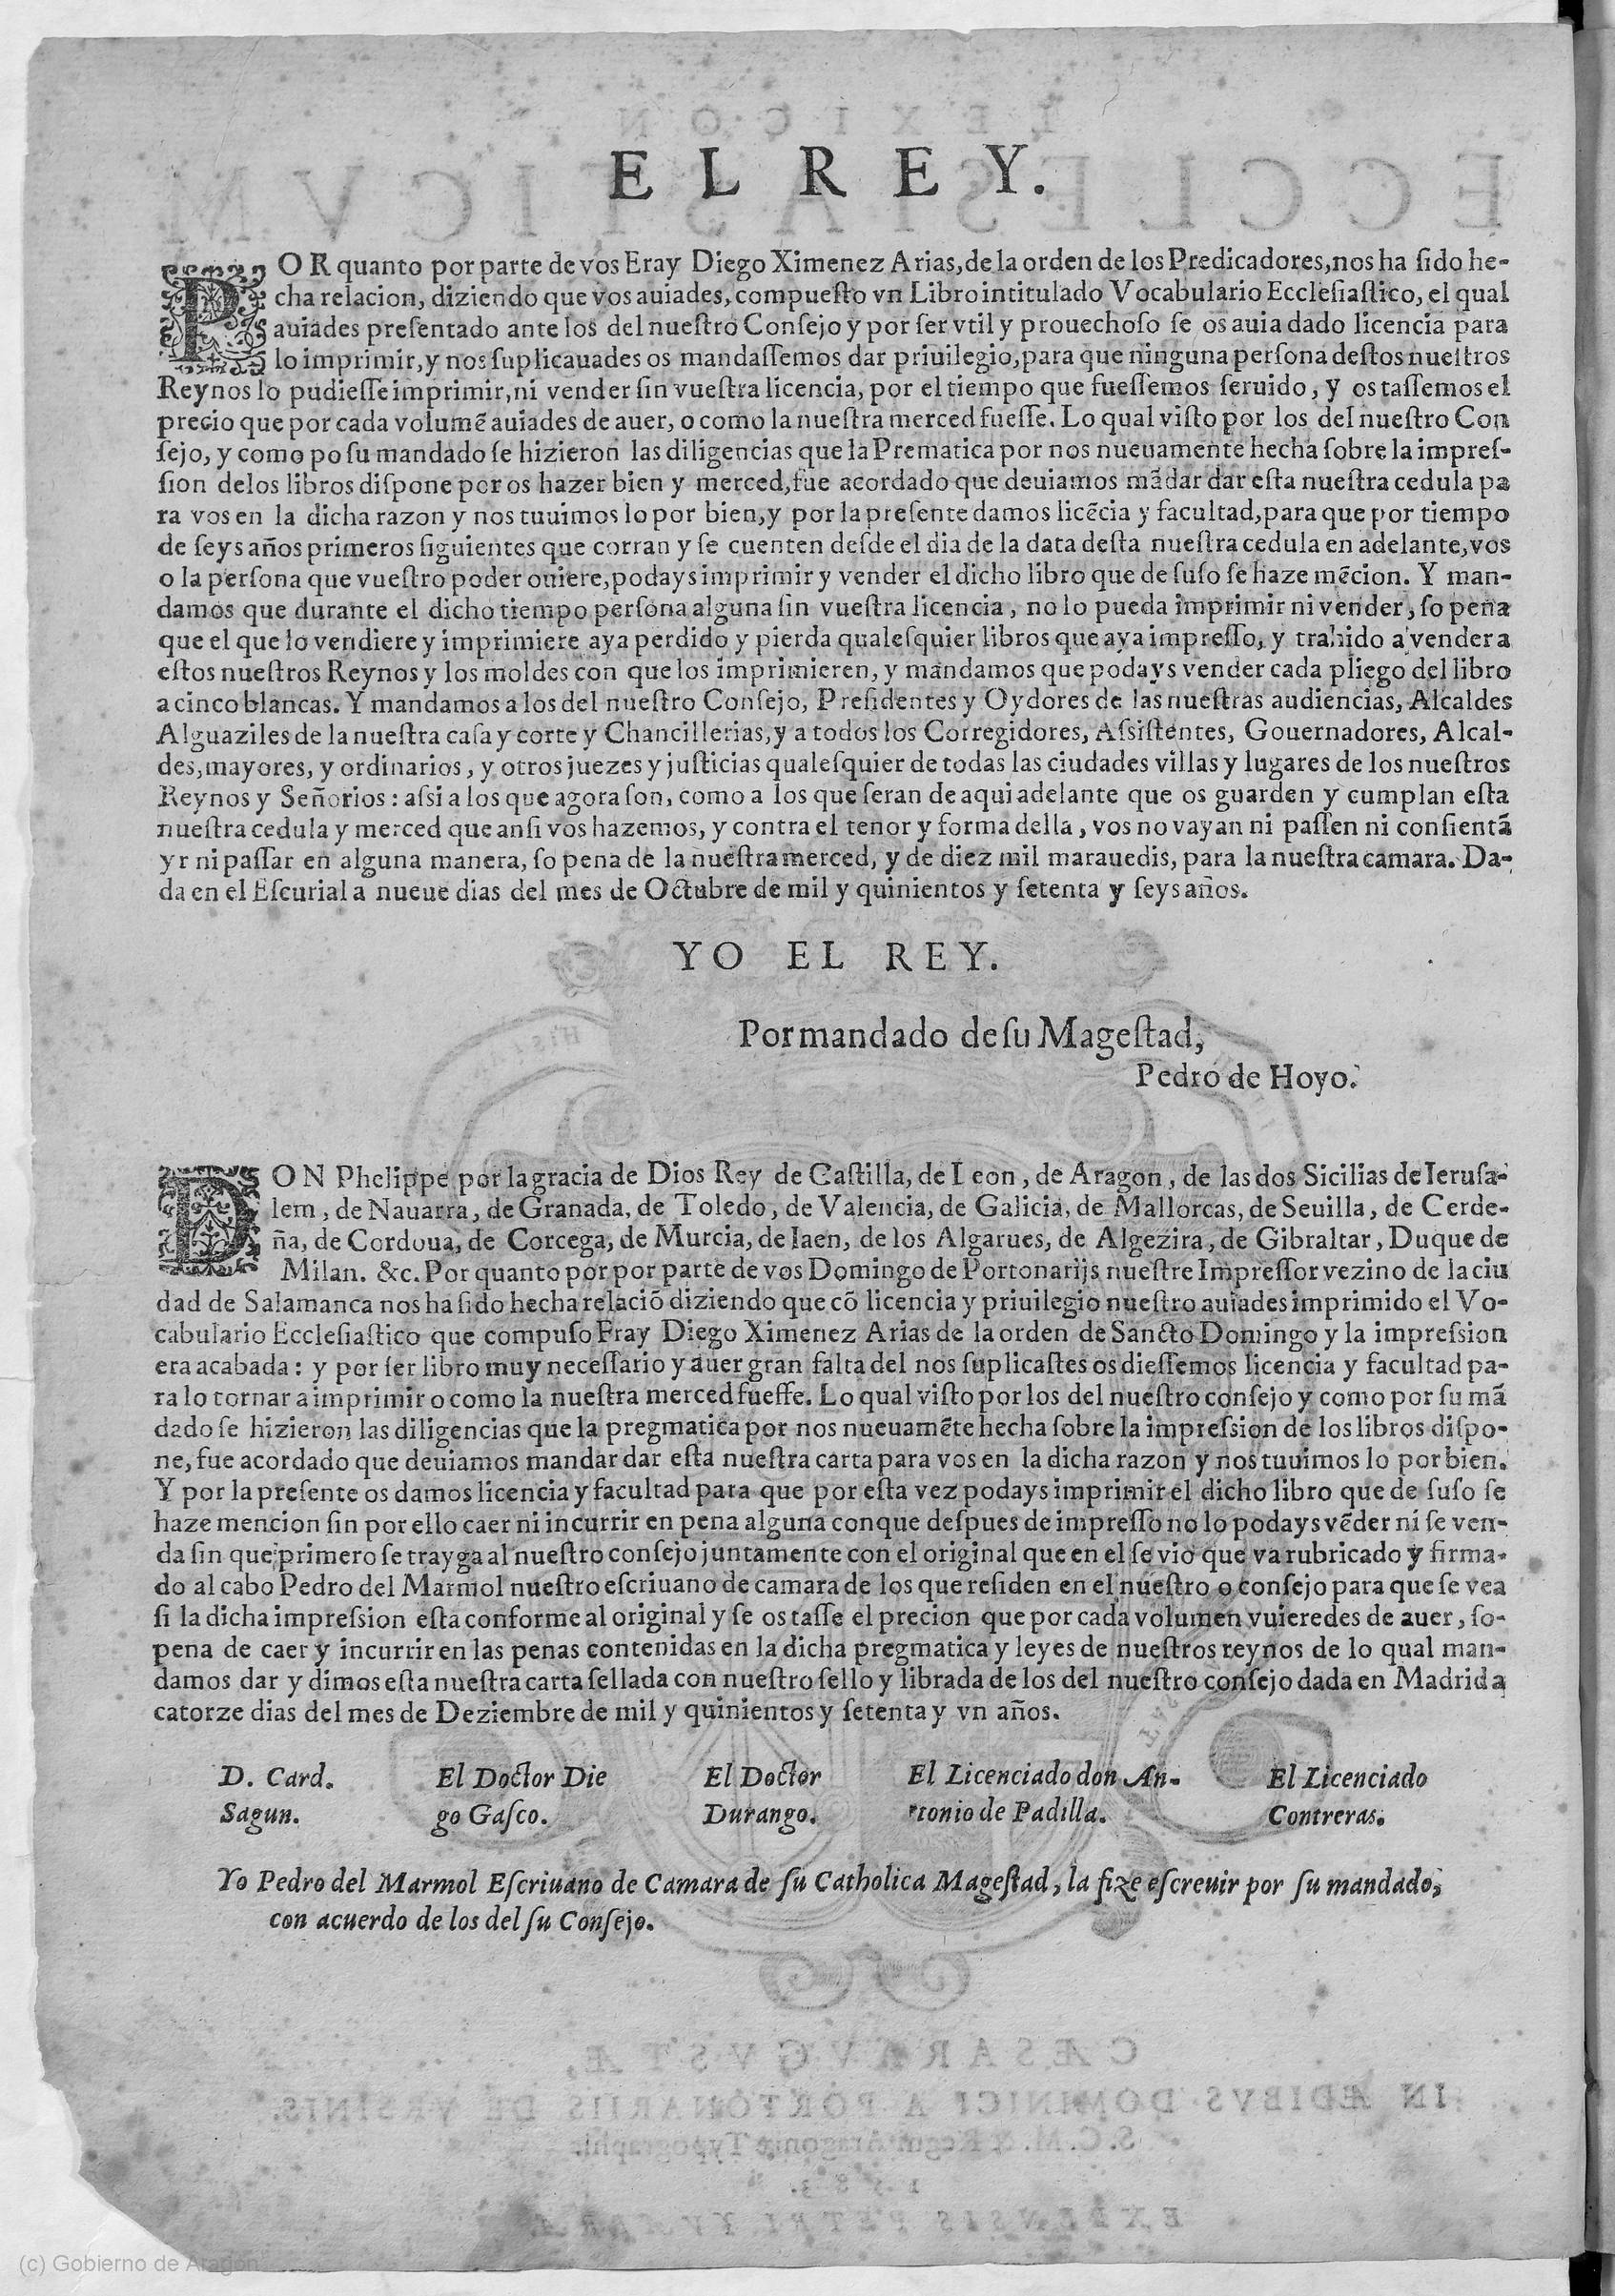 EL REY.
POR quanto por parte de vos Eray Diego Ximenez Arias, de la orden de los Predicadores, nos ha ſido he-
cha relacion, diziendo que vos auiades, compueſto vn Libro intitulado Vocabulario Eccleſiaſtico, el qual
auiades preſentado ante los del nueſtro Conſejo y por ſer vtil y prouechoſo ſe os auia dado licencia para
lo imprimir, y nos ſuplicauades os mandaſſemos dar priuilegio, para que ninguna perſona deſtos nueſtros
Reynos lo pudieſſe imprimir, ni vender ſin vueſtra licencia, por el tiempo que fueſſemos ſeruido, y os taſſemos el
precio que por cada volumẽ auiades de auer, o como la nueſtra merced fueſſe. Lo qual viſto por los del nueſtro Con
ſejo, y como po ſu mandado ſe hizieron las diligencias que la Prematica por nos nueuamente hecha ſobre la impreſ-
ſion delos libros diſpone por os hazer bien y merced, fue acordado que deuiamos mãdar dar eſta nueſtra cedula pa
ra vos en la dicha razon y nos tuuimos lo por bien, y por la preſente damos licẽcia y facultad, para que por tiempo
de ſeys años primeros ſiguientes que corran y ſe cuenten deſde el dia de la data deſta nueſtra cedula en adelante, vos
o la perſona que vueſtro poder ouiere, podays imprimir y vender el dicho libro que de ſuſo ſe haze mẽcion. Y man-
damos que durante el dicho tiempo perſona alguna ſin vueſtra licencia, no lo pueda imprimir ni vender, ſo pena
que el que lo vendiere y imprimiere aya perdido y pierda qualeſquier libros que aya impreſſo, y trahido a vender a
eſtos nueſtros Reynos y los moldes con que los imprimieren, y mandamos que podays vender cada pliego del libro
a cinco blancas. Y mandamos a los del nueſtro Conſejo, Preſidentes y Oydores de las nueſtras audiencias, Alcaldes
Alguaziles de la nueſtra caſa y corte y Chancillerias, y a todos los Corregidores, Aſsiſtentes, Gouernadores, Alcal-
des, mayores, y ordinarios, y otros juezes y juſticias qualeſquier de todas las ciudades villas y lugares de los nueſtros
Reynos y Señorios: aſsi a los que agora ſon, como a los que ſeran de aqui adelante que os guarden y cumplan eſta
nueſtra cedula y merced que anſi vos hazemos, y contra el tenor y forma della, vos no vayan ni paſſen ni conſientã
yr ni paſſar en alguna manera, ſo pena de la nueſtra merced, y de diez mil marauedis, para la nueſtra camara. Da-
da en el Eſcurial a nueue dias del mes de Octubre de mil y quinientos y ſetenta y ſeys años.
YO EL REY.
Por mandado de ſu Mageſtad,
Pedro de Hoyo.
DON Phelippe por la gracia de Dios Rey de Caſtilla, de Leon, de Aragon, de las dos Sicilias de Ieruſa-
lem, de Nauarra, de Granada, de Toledo, de Valencia, de Galicia, de Mallorcas, de Seuilla, de Cerde-
ña, de Cordoua, de Corcega, de Murcia, de Iaen, de los Algarues, de Algezira, de Gibraltar, Duque de
Milan. &c. Por quanto por por parte de vos Domingo de Portonarijs nueſtre Impreſſor vezino de la ciu
dad de Salamanca nos ha ſido hecha relaciõ diziendo que cõ licencia y priuilegio nueſtro auiades imprimido el Vo-
cabulario Eccleſiaſtico que compuſo Fray Diego Ximenez Arias de la orden de Sancto Domingo y la impreſsion
era acabada: y por ſer libro muy neceſſario y auer gran falta del nos ſuplicaſtes os dieſſemos licencia y facultad pa-
ra lo tornar a imprimir o como la nueſtra merced fueſſe. Lo qual viſto por los del nueſtro conſejo y como por ſu mã
dado ſe hizieron las diligencias que la pregmatica por nos nueuamẽte hecha ſobre la impreſsion de los libros diſpo-
ne, fue acordado que deuiamos mandar dar eſta nueſtra carta para vos en la dicha razon y nos tuuimos lo por bien.
Y por la preſente os damos licencia y facultad para que por eſta vez podays imprimir el dicho libro que de ſuſo ſe
haze mencion ſin por ello caer ni incurrir en pena alguna con que deſpues de impreſſo no lo podays vẽder ni ſe ven-
da ſin que primero ſe trayga al nueſtro conſejo juntamente con el original que en el ſe vio que va rubricado y firma-
do al cabo Pedro del Marmol nueſtro eſcriuano de camara de los que reſiden en el nueſtro o conſejo para que ſe vea
ſi la dicha impreſsion eſta conforme al original y ſe os taſſe el precion que por cada volumen vuieredes de auer, ſo-
pena de caer y incurrir en las penas contenidas en la dicha pregmatica y leyes de nueſtros reynos de lo qual man-
damos dar y dimos eſta nueſtra carta ſellada con nueſtro ſello y librada de los del nueſtro conſejo dada en Madrid a
catorze dias del mes de Deziembre de mil y quinientos y ſetenta y vn años.
D. Card. El Doctor Die El Doctor El Licenciado don An- El Licenciado
Sagun. go Gaſco. Durango. tonio de Padilla. Contreras.
Yo Pedro del Marmol Eſcriuano de Camara de ſu Catholica Mageſtad, la fize eſcreuir por ſu mandado,
con acuerdo de los del ſu Conſejo.
(c) Gobierno de Aragón